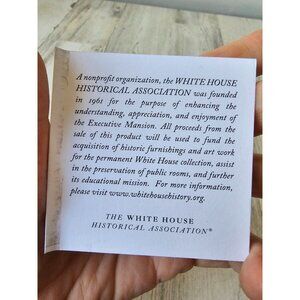 A nonprofit organization, the WHITE HOUSE
HISTORICAL ASSOCIATION was founded
in 1961 for the purpose of enhancing the
understanding, appreciation, and enjoyment of
the Executive Mansion. All proceeds from the
sale of this product will be used to fund the
acquisition of historic furnishings and art work
for the permanent White House collection, assist
in the preservation of public rooms, and further
its educational mission. For more information,
please visit www.whitehousehistory.org.
THE WHITE HOUSE
HISTORICAL ASSOCIATION®